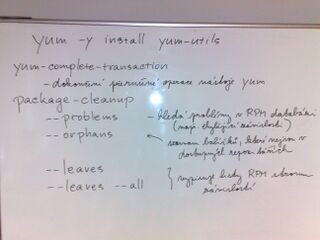 yum -y install yum-utils
yum-complete-transaction
- dokončení přerušené operace nástroje yum
package-cleanup
--problems - hledá problémy v RPM databázi
(např. chybějící závislosti)
--orphans seznam balíčků, které nejsou v
dostupných repozitářích
--leaves
--leaves --all } vypisuje listy RPM stromu
závislostí